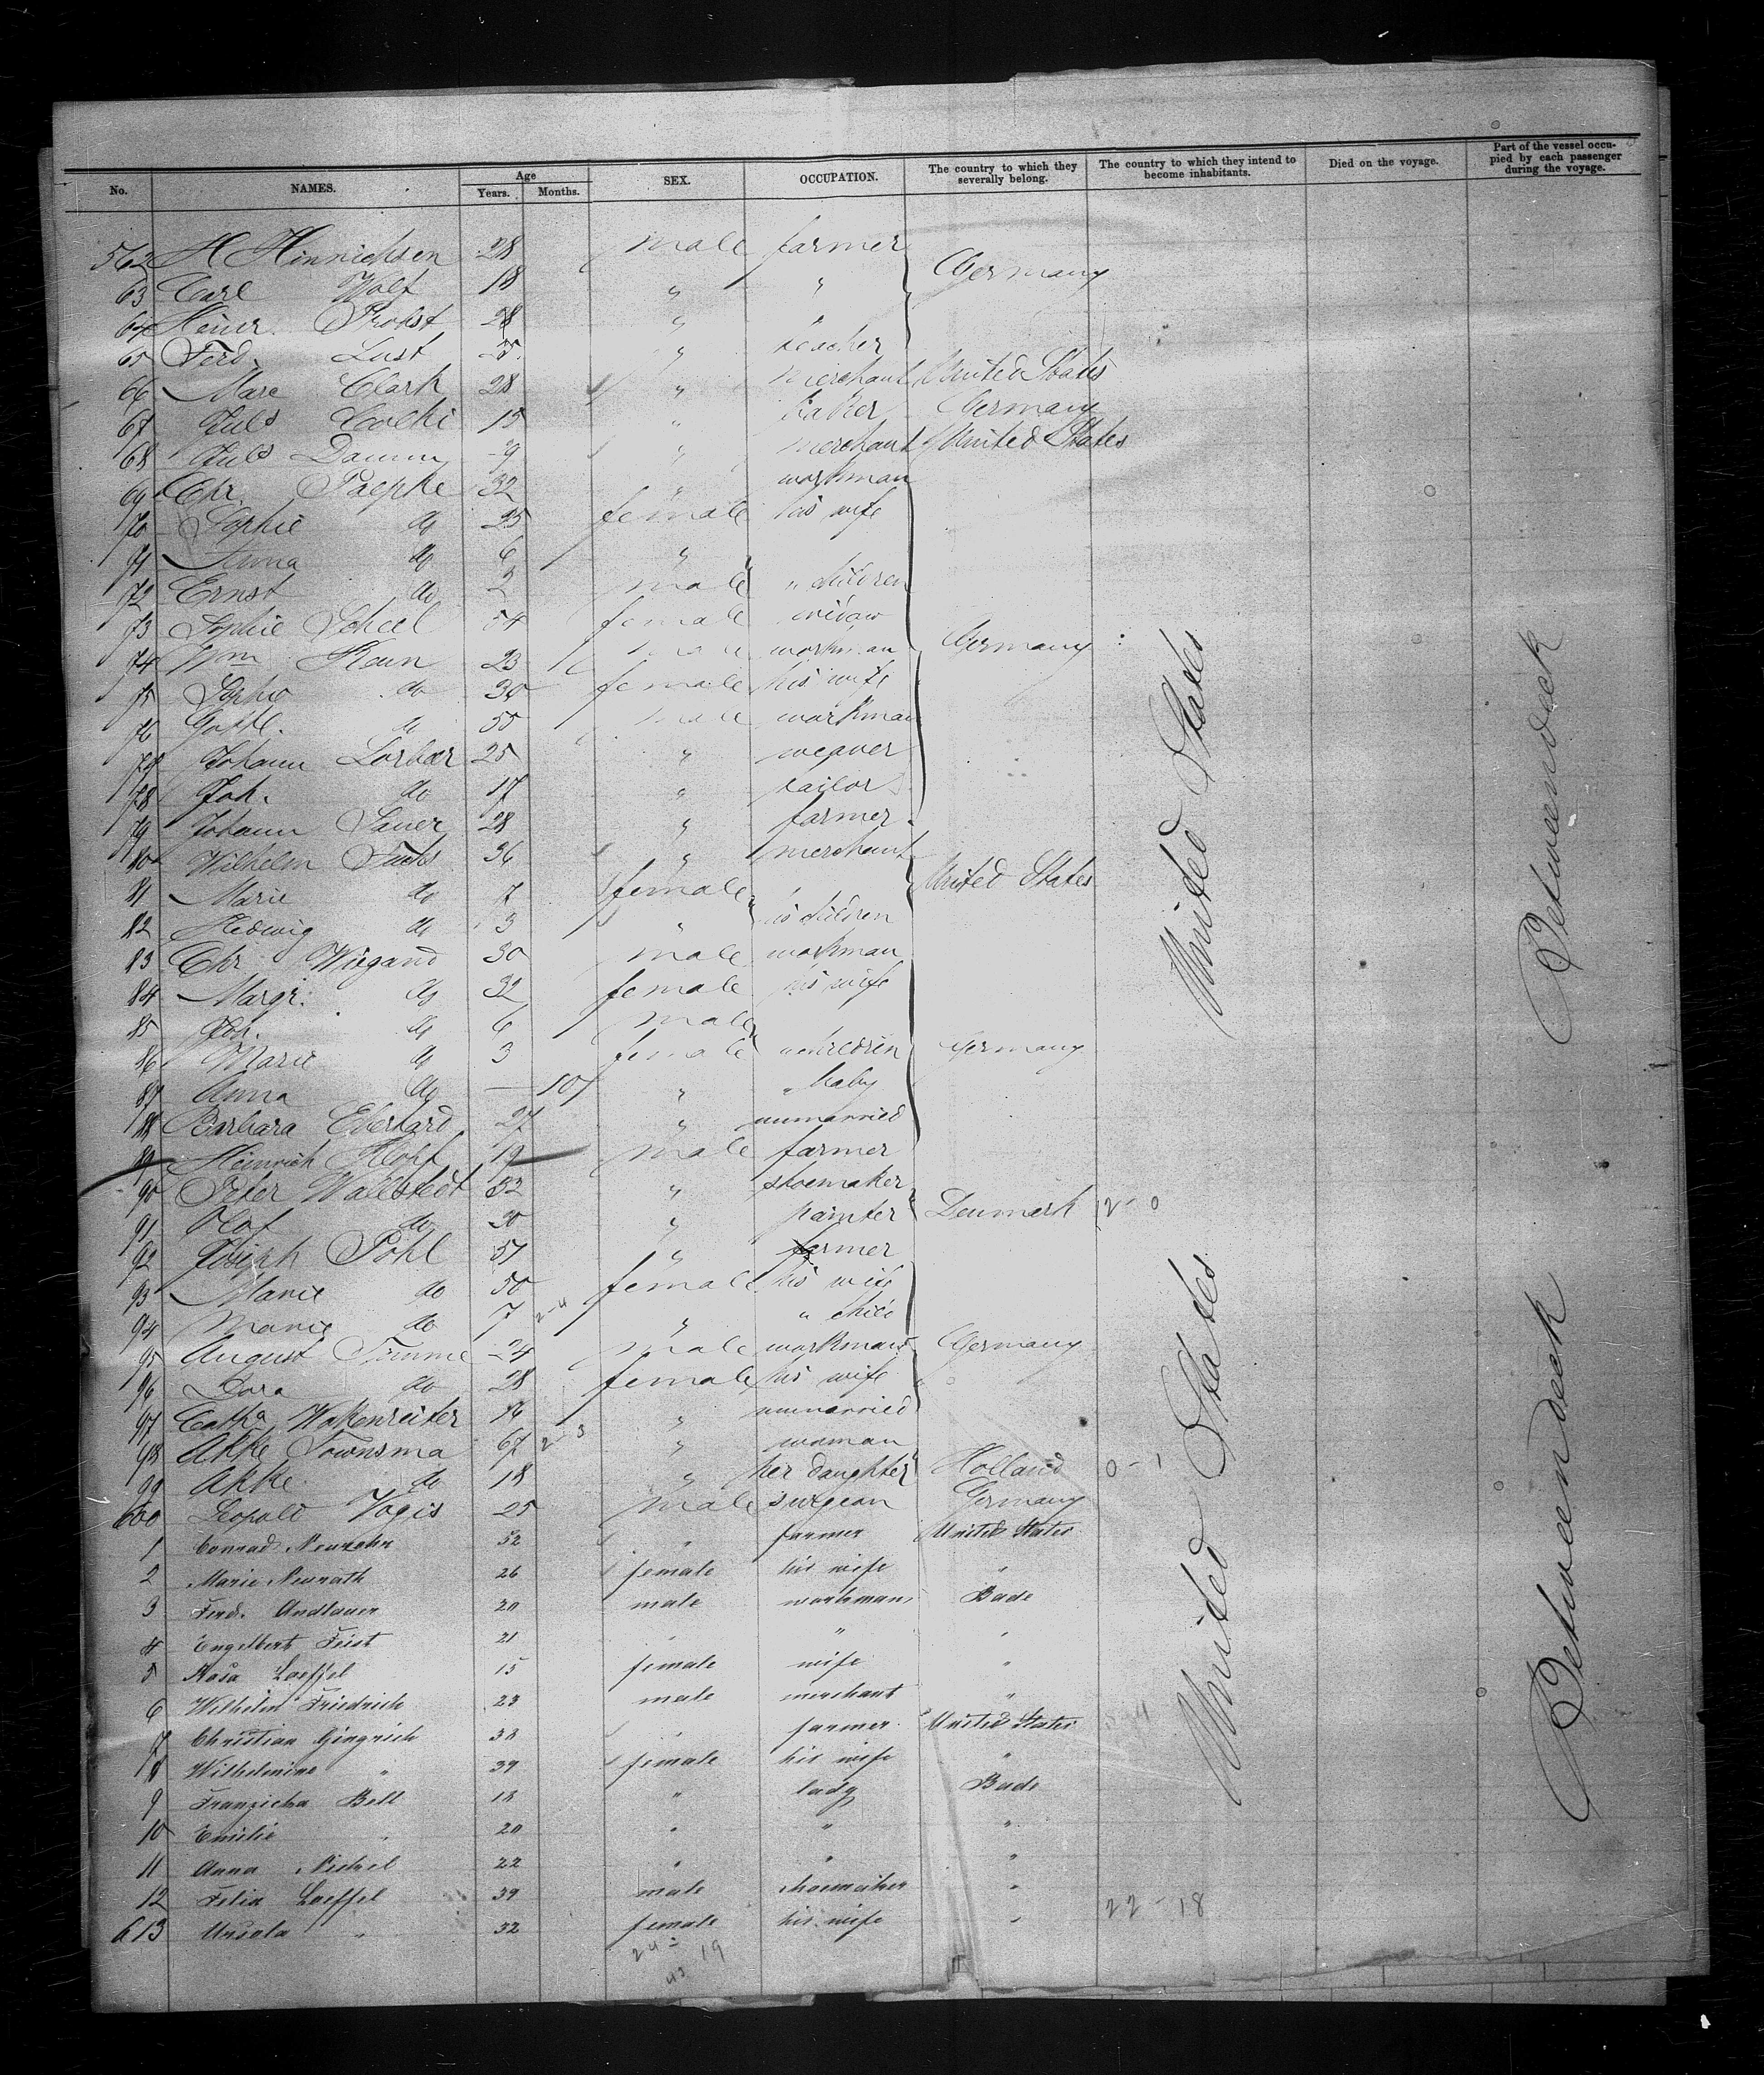 No. NAMES. Age Years. Months. SEX. OCCUPATION. The country to which they severally belong. The country to which they intend to become inhabitants. Died on the voyage. Part of the vessel occupied by each passenger during the voyage.
562 H Hinrichsen 28 male farmer
Germany
63 Carl Wolf 18 " "
64 Heinr. Probst 28 " "
65 Ferd. Lust " teacher
66 Marc Clark 28 " merchant United States
67 Juls 15 " baker Germany
68 Juls Damm " merchant United States
69 Chr. Paepke 32 " workman
70 Sophie do 25 female his wife
71 Anna do 6 "
72 Ernst do 2 male " children
73 Sophie Scheel 54 female widow
74 Wm 23 male workman Germany
75 Sophie do 30 female his wife
76 Gottl. do 55 male workman
77 Johann Lorbær 25 " weaver
78 Joh. do 17 " tailor
79 Johann Sauer 28 " farmer
80 Wilhelm 36 " merchant
81 Marie do 7 female United States
82 Hedwig do 3 " is children
83 Chr Wiegand 30 male workman
84 Margr. do 32 female his wife
85 Joh. do 6 male
86 Marie do 3 female " children Germany
87 Anna do — 10 " " baby
88 Barbara Eberhard 27 " unmarried
89 Heinrich Klopf 19 male farmer
90 Peter Wallstedt 52 " shoemaker
91 Olof do 20 " painter Denmark 2-0
92 Joseph Pohl 57 " farmer
93 Marie do 50 female his wife
94 Marie do 7 2-4 " " child
95 August Timme 24 male workman Germany
96 Dora do 28 female his wife
97 Catha Wokenreiter 16 " unmarried
98 Akke Townsma 67 2-3 " woman
99 Akke do 18 " her daughter Holland 0-1
600 Leopold Vogis 25 male surgeon Germany
1 Conrad Neurohr 52 " farmer United States
2 Marie Neurath 26 female his wife "
3 Ferd. Andlauer 20 male workman Bade
4 Engelbert Feist 21 " " "
5 Rosa Loeffel 15 female wife "
6 Wilhelm Friedrich 23 male merchant "
7 Christian Gingrich 38 " farmer United States
8 Wilhelmine " 39 female his wife "
9 Franzicka Bell 18 " lady Bade
10 Emilie " 20 " " "
11 Anna 22 " " "
12 Felix Loeffel 39 male shoemaker "
613 Ursula " 32 female his wife "
22-18
24- 19
43
United States
Betweendeck
United States
Betweendeck